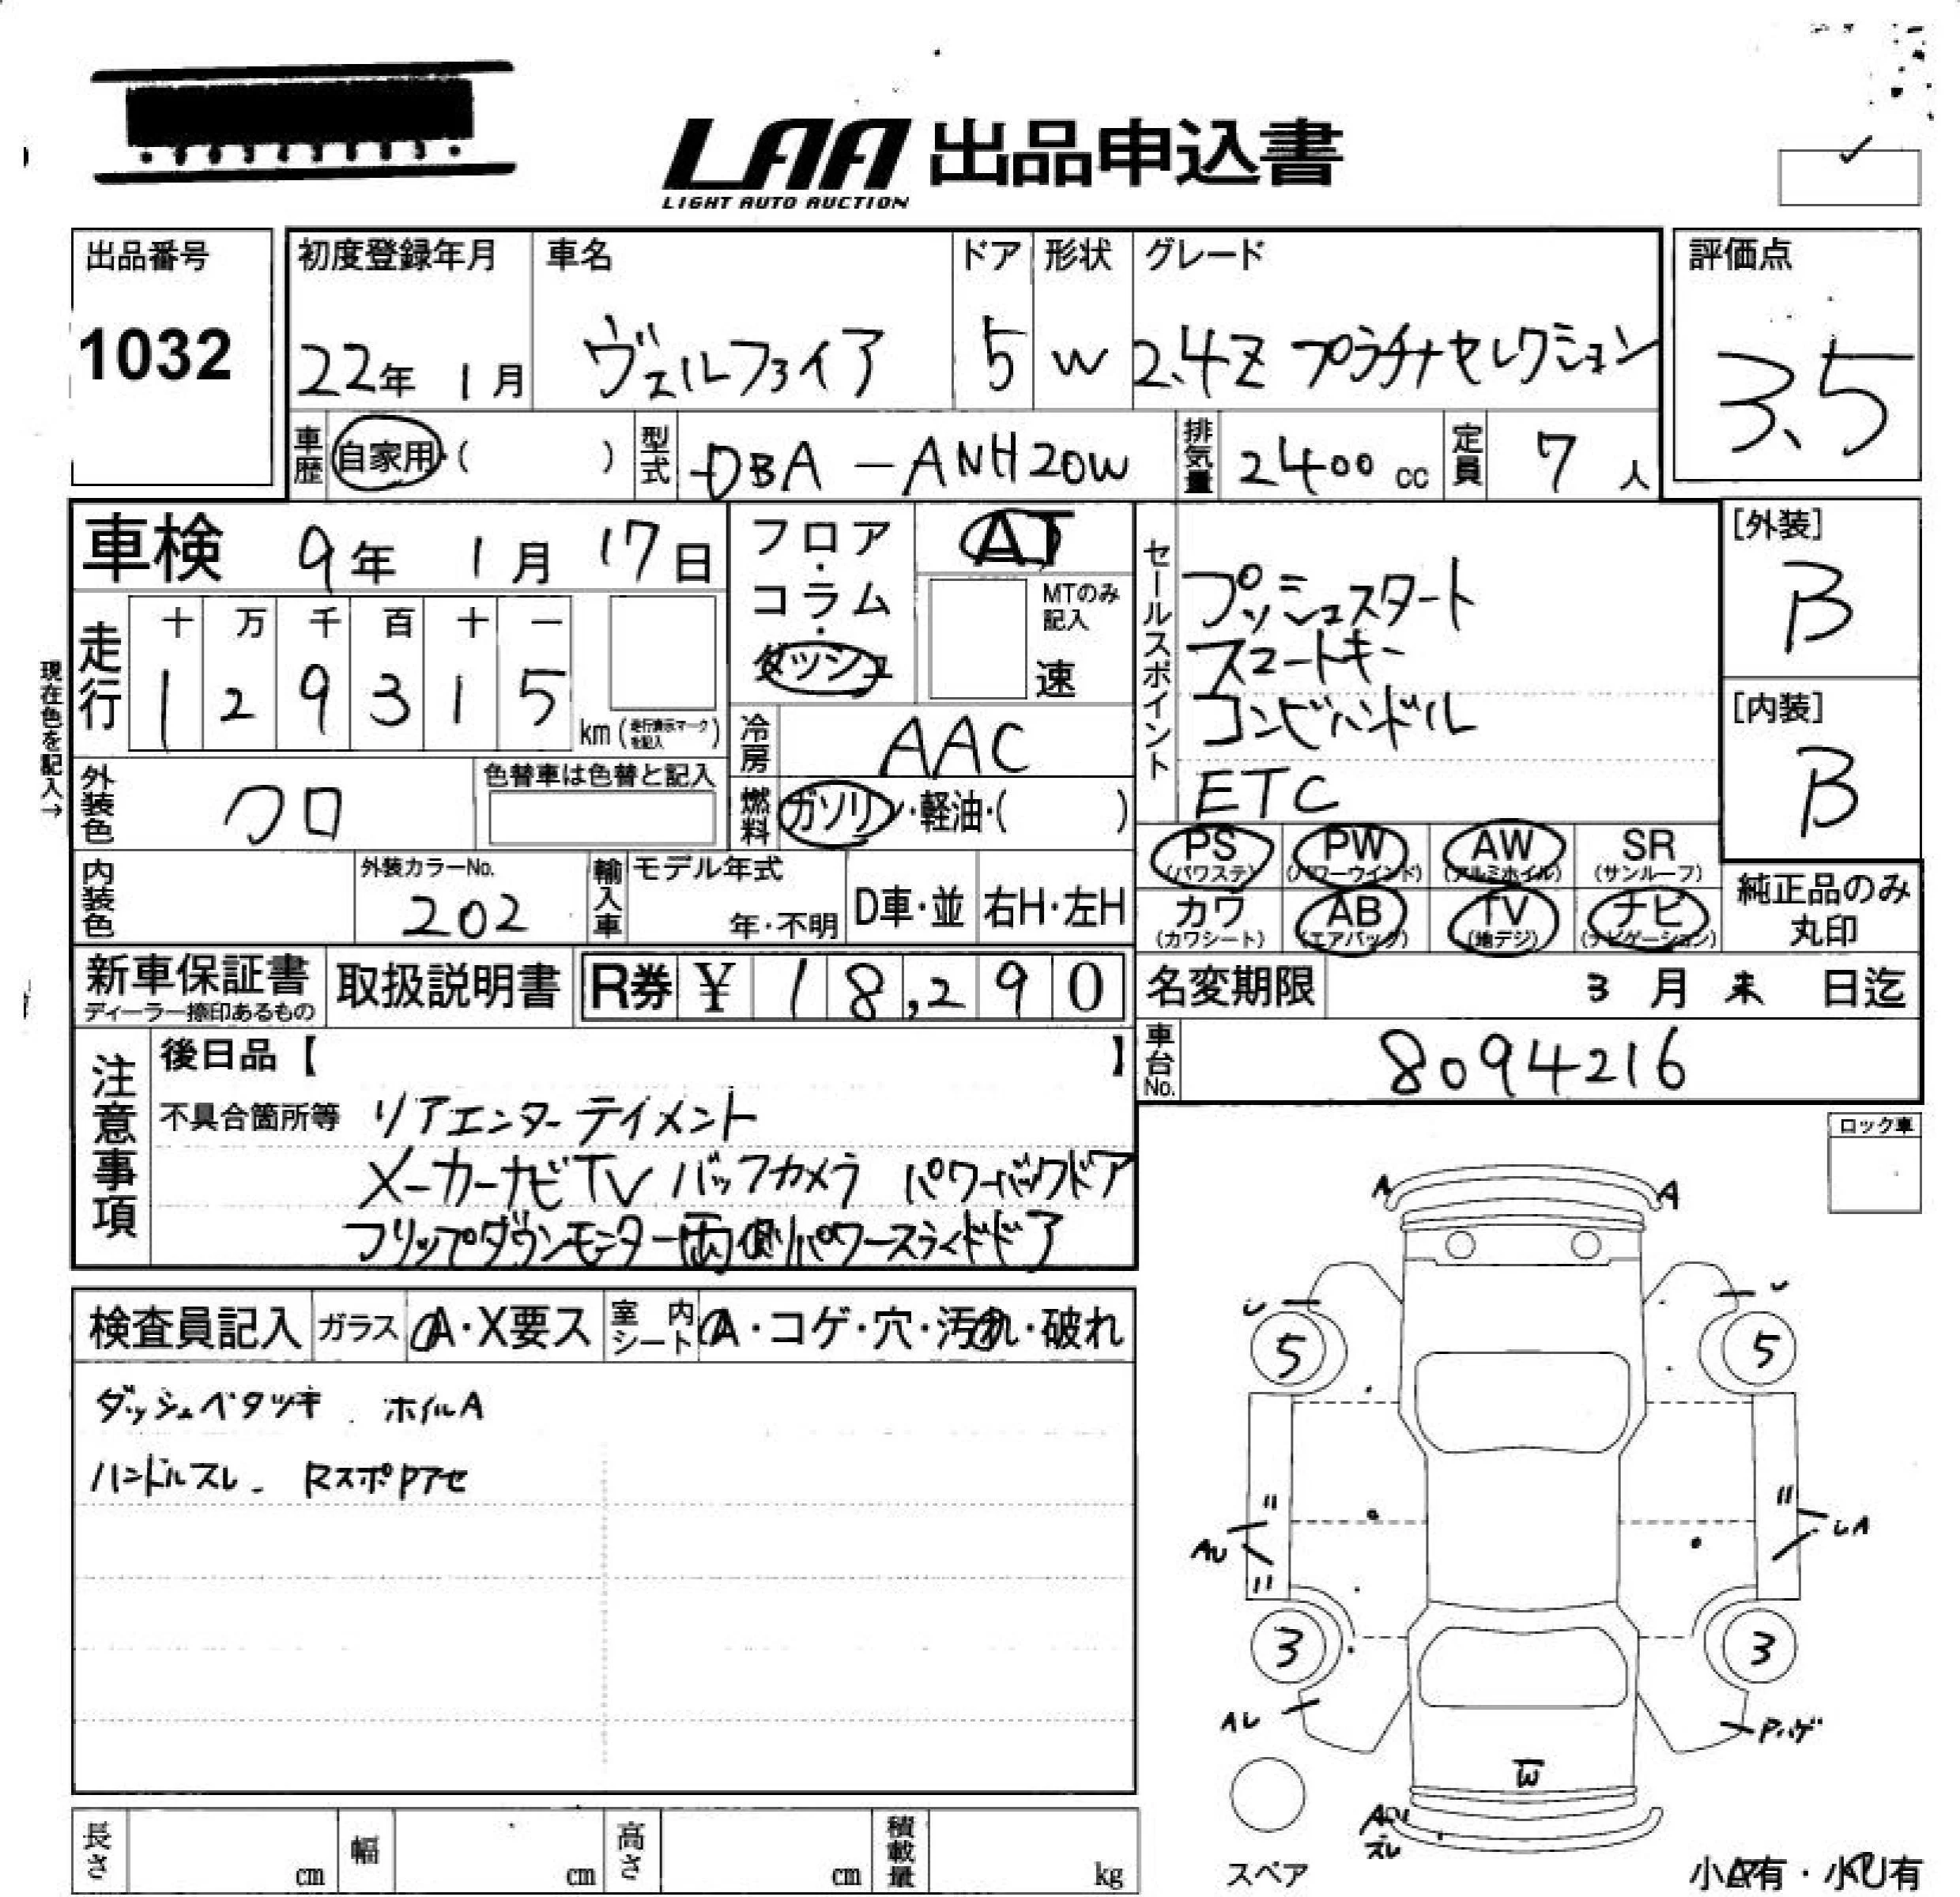 LAA 出品申込書
LIGHT AUTO AUCTION
出品番号
1032
初度登録年月
22年 1月
車名
ヴェルファイア
ドア
5
形状
W
グレード
2.4Z プラチナセレクション
評価点
3.5
車歴 自家用・( )
型式 DBA-ANH20W
排気量 2400 cc
定員 7人
車検 9年 1月 17日
フロア・コラム・ダッシュ
AT
MTのみ記入
速
走行
十 万 千 百 十 一
1 2 9 3 1 5
km (走行表示マークを記入)
現在色を記入→
冷房 AAC
燃料 ガソリン・軽油・( )
外装色 クロ
色替車は色替と記入
内装色
外装カラーNo.
202
輸入車
モデル年式
年・不明
D車・並
右H・左H
セールスポイント
プッシュスタート
スマートキー
コンビハンドル
ETC
[外装]
B
[内装]
B
PS (パワステ)
PW (パワーウインド)
AW (アルミホイル)
SR (サンルーフ)
カワ (カワシート)
AB (エアバック)
TV (地デジ)
ナビ (ナビゲーション)
純正品のみ丸印
新車保証書
ディーラー捺印あるもの
取扱説明書
R券 ¥ 18,290
名変期限 3月 末 日迄
車台No. 8094216
注意事項
後日品【 】
不具合箇所等 リアエンターテイメント
メーカーナビTV バックカメラ パワーバックドア
フリップダウンモニター両側パワースライドドア
ロック車
検査員記入
ガラス A・X要ス
室内シート A・コゲ・穴・汚れ・破れ
ダッシュベタツキ ホイルA
ハンドルスレ Rスポアセ
A A
5 5
AU
3 3
Pハゲ
W
スペア
小A有・小U有
長さ cm
幅 cm
高さ cm
積載量 kg